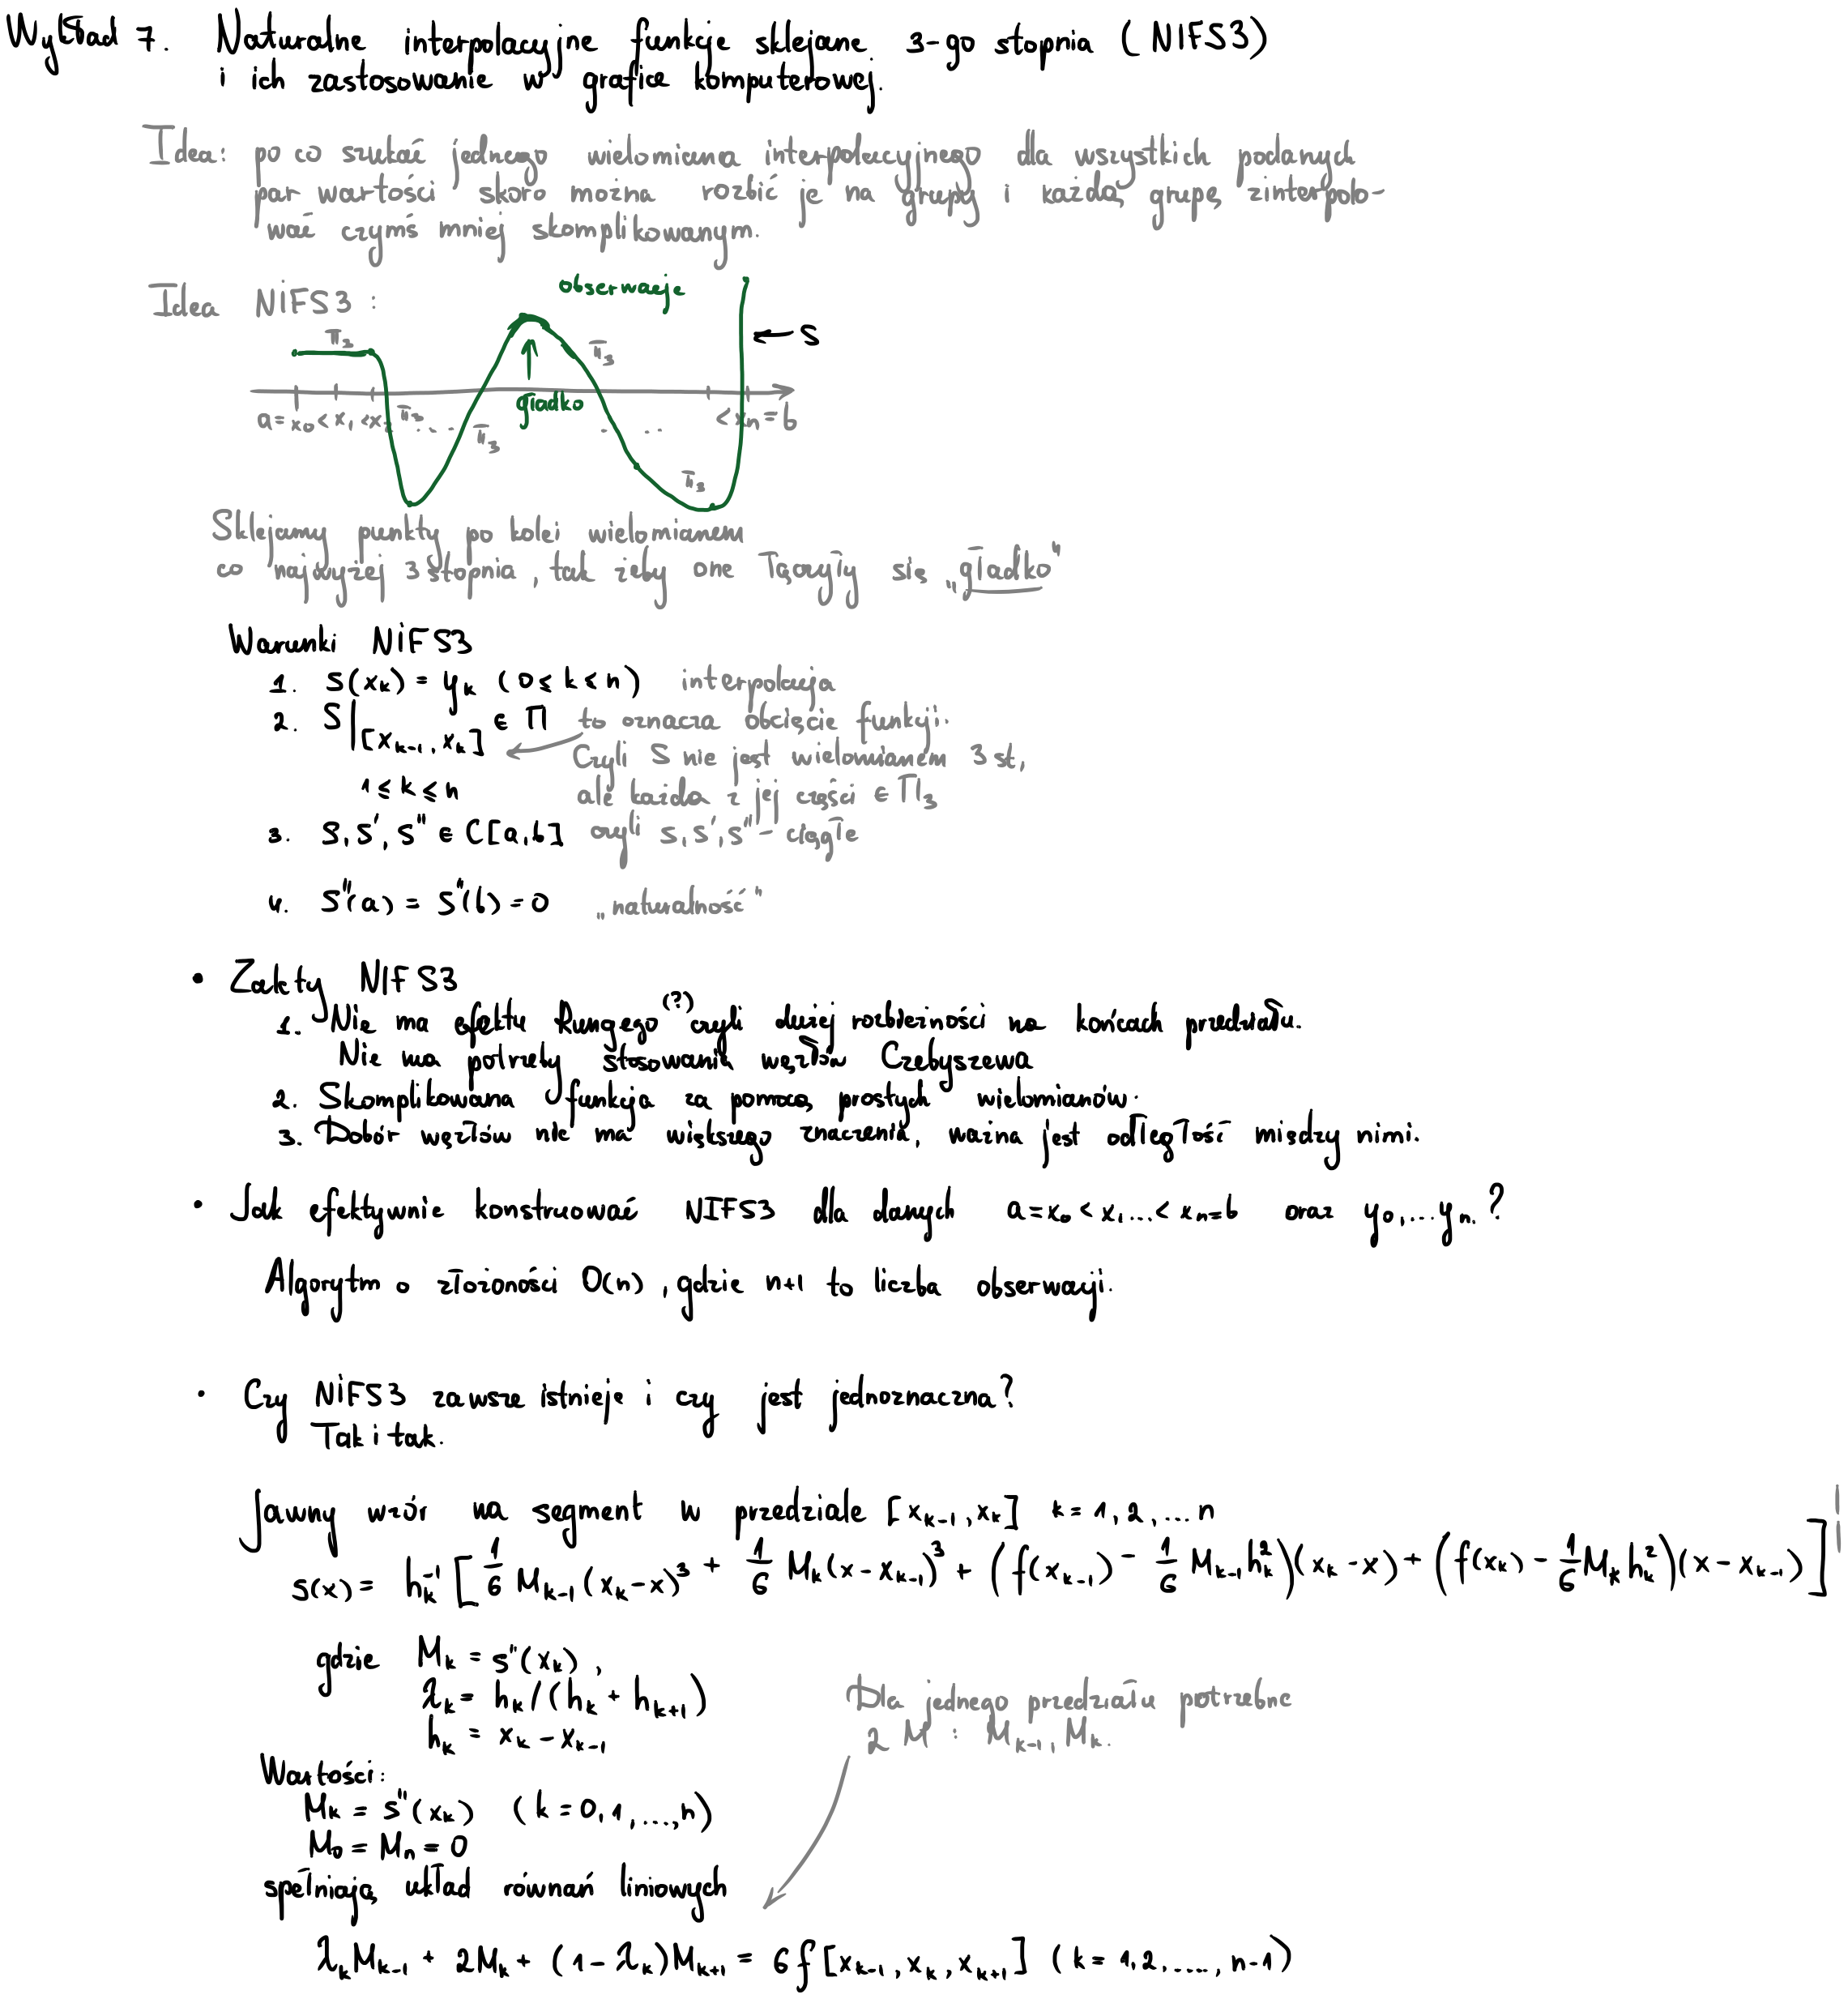 Wykład 7. Naturalne interpolacyjne funkcje sklejane 3-go stopnia (NIFS3)
i ich zastosowanie w grafice komputerowej.
Idea: po co szukać jednego wielomiana interpolacyjnego dla wszystkich podanych
par wartości skoro można rozbić je na grupy i każdą grupę zinterpolo-
wać czymś mniej skomplikowanym.
Idea NIFS3:
obserwacje
← S
Π₃
Π₃
gładko
a = x₀ < x₁ < x₂ Π₃ .... Π₃ ... < xₙ = b
Π₃
Sklejamy punkty po kolei wielomianem
co najwyżej 3 stopnia, tak żeby one łączyły się „gładko"
Warunki NIFS3
1. S(xₖ) = yₖ (0 ≤ k ≤ n) interpolacja
2. S|[xₖ₋₁, xₖ] ∈ Π to oznacza obcięcie funkcji.
Czyli S nie jest wielomianem 3 st,
1 ≤ k ≤ n ale każda z jej części ∈ Π₃
3. S, S', S'' ∈ C[a,b] czyli s, s', s'' - ciągłe
4. S''(a) = S''(b) = 0 „naturalność"
• Zalety NIFS3
1. Nie ma efektu Rungego (?) czyli dużej rozbieżności na końcach przedziału.
Nie ma potrzeby stosowania węzłów Czebyszewa
2. Skomplikowana funkcja za pomocą prostych wielomianów.
3. Dobór węzłów nie ma większego znaczenia, ważna jest odległość między nimi.
• Jak efektywnie konstruować NIFS3 dla danych a = x₀ < x₁ ... < xₙ = b oraz y₀, ... yₙ.?
Algorytm o złożoności O(n), gdzie n+1 to liczba obserwacji.
• Czy NIFS3 zawsze istnieje i czy jest jednoznaczna?
Tak i tak.
Jawny wzór na segment w przedziale [xₖ₋₁, xₖ] k = 1, 2, ... n
s(x) = hₖ⁻¹ [ 1/6 Mₖ₋₁(xₖ - x)³ + 1/6 Mₖ(x - xₖ₋₁)³ + (f(xₖ₋₁) - 1/6 Mₖ₋₁hₖ²)(xₖ - x) + (f(xₖ) - 1/6 Mₖhₖ²)(x - xₖ₋₁) ]
gdzie Mₖ = s''(xₖ),
λₖ = hₖ/(hₖ + hₖ₊₁)
hₖ = xₖ - xₖ₋₁
Dla jednego przedziału potrzebne
2 M : Mₖ₋₁, Mₖ.
Wartości:
Mₖ = s''(xₖ) (k = 0, 1, ..., n)
M₀ = Mₙ = 0
spełniają układ równań liniowych
λₖMₖ₋₁ + 2Mₖ + (1 - λₖ)Mₖ₊₁ = 6f[xₖ₋₁, xₖ, xₖ₊₁] (k = 1, 2, ...., n-1)